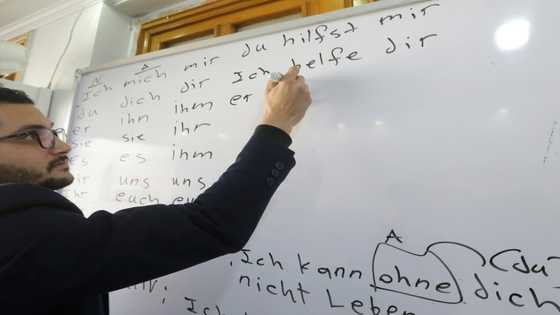 N A
Ich mich mir du hilfst mir
du dich dir Ich helfe dir
er ihn ihm er
sie sie ihr
es es ihm
wir uns uns
ihr euch eu
A
Ich kann ohne (du
dich
nicht Leben
Ich